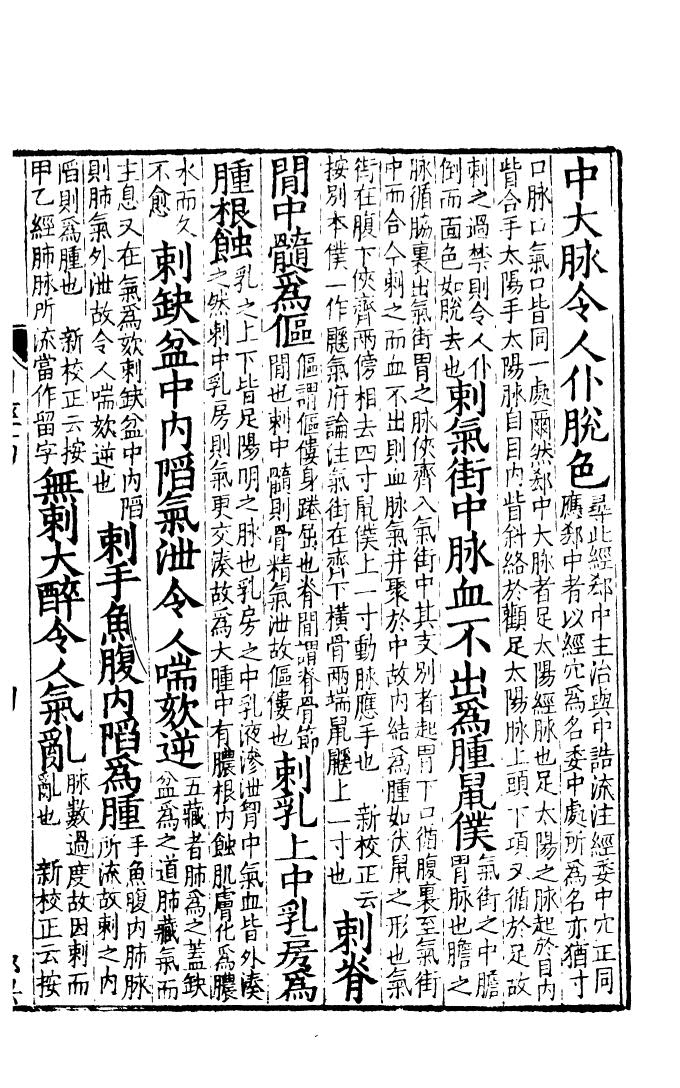 中大脉令人仆脫色尋此經郄中主治與中誥流注經委中穴正同
應郄中者以經穴爲名委中處所爲名亦猶寸
口脉口氣口皆同一處爾然郄中大脉者足太陽經脉也足太陽之脉起於目内
眥合手太陽手太陽脉自目内眥斜絡於顴足太陽脉上頭下項又循於足故
刺之過禁則令人仆
倒而面色如脫去也
刺氣街中脉血不出爲腫鼠僕氣街之中膽
胃脉也膽之
脉循脇裏出氣街胃之脉俠齊入氣街中其支別者起胃下口循腹裏至氣街
中而合今刺之而血不出則血脉氣并聚於中故内結爲腫如伏鼠之形也氣
街在腹下俠齊兩傍相去四寸鼠僕上一寸動脉應手也 新校正云
按別本僕一作鼷氣府論注氣街在齊下橫骨兩端鼠鼷上一寸也
刺脊
間中髓爲傴傴謂傴僂身踡屈也脊間謂脊骨節
間也刺中髓則骨精氣泄故傴僂也
刺乳上中乳房爲
腫根蝕乳之上下皆足陽明之脉也乳房之中乳液滲泄胷中氣血皆外湊
之然刺中乳房則氣更交湊故爲大腫中有膿根内蝕肌膚化爲膿
水而久
不愈
刺缺盆中内陷氣泄令人喘欬逆五藏者肺爲之蓋缺
盆爲之道肺藏氣而
主息又在氣爲欬刺缺盆中内陷
則肺氣外泄故令人喘欬逆也
刺手魚腹内陷爲腫手魚腹内肺脉
所流故刺之内
陷則爲腫也 新校正云按
甲乙經肺脉所流當作留字
無刺大醉令人氣亂脉數過度故因刺而
亂也 新校正云按